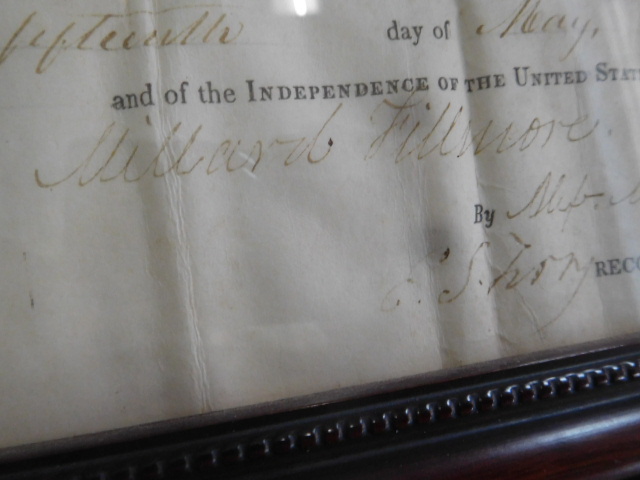 fifteenth day of May,
and of the INDEPENDENCE OF THE UNITED STAT
Millard Fillmore.
By
RECO